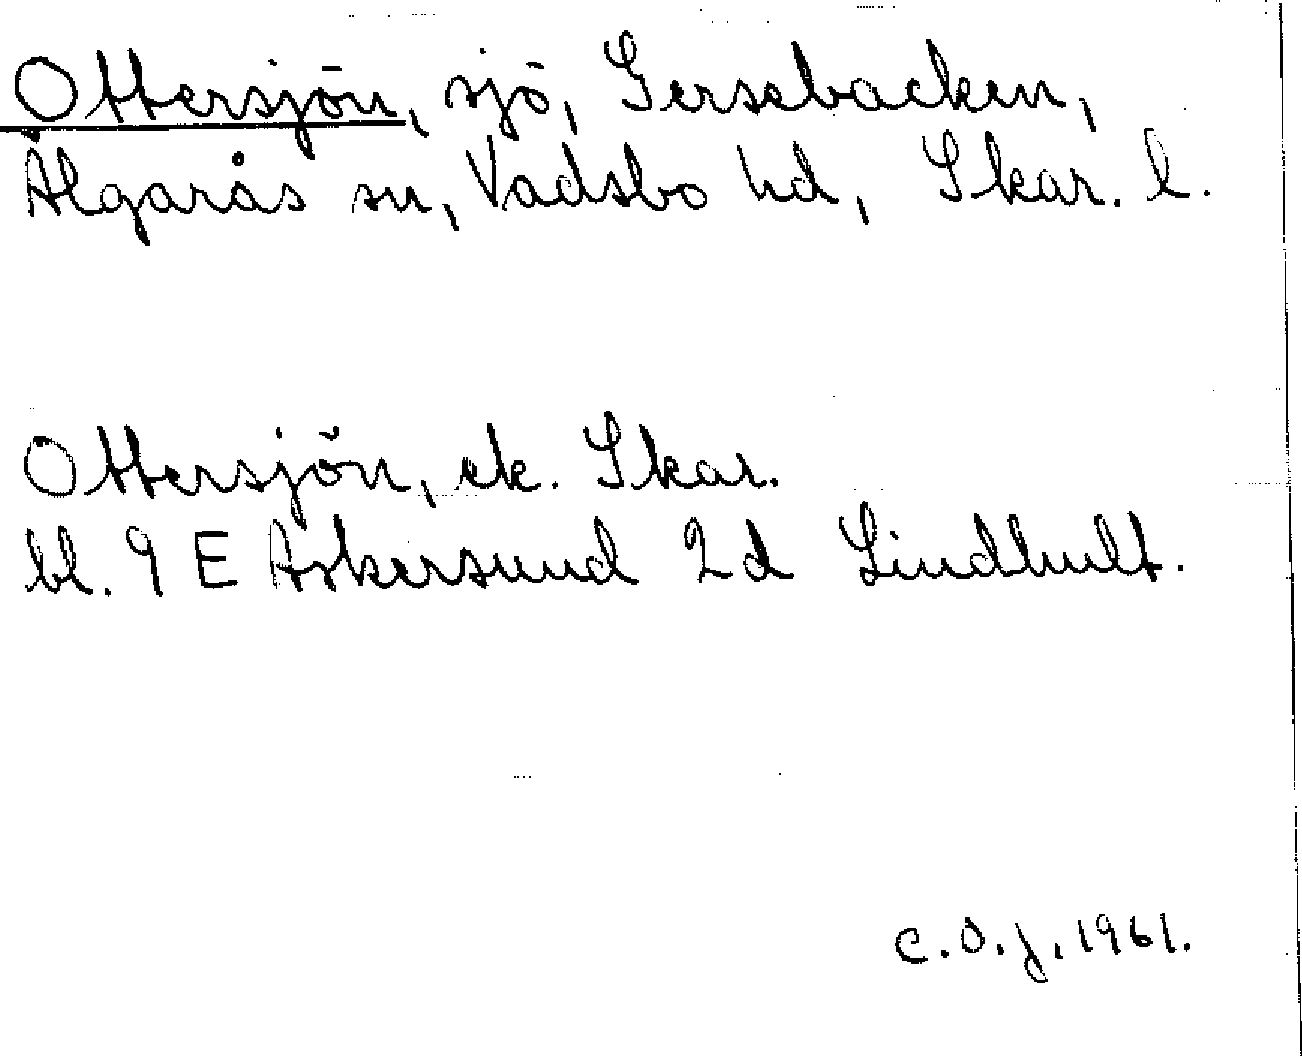 Ottersjön, sjö, Gersebacken,
Älgarås sn, Vadsbo hd, Skar. l.
Ottersjön, ek. Skar.
bl. 9 E Askersund 2d Lindhult.
C.O.J. 1961.